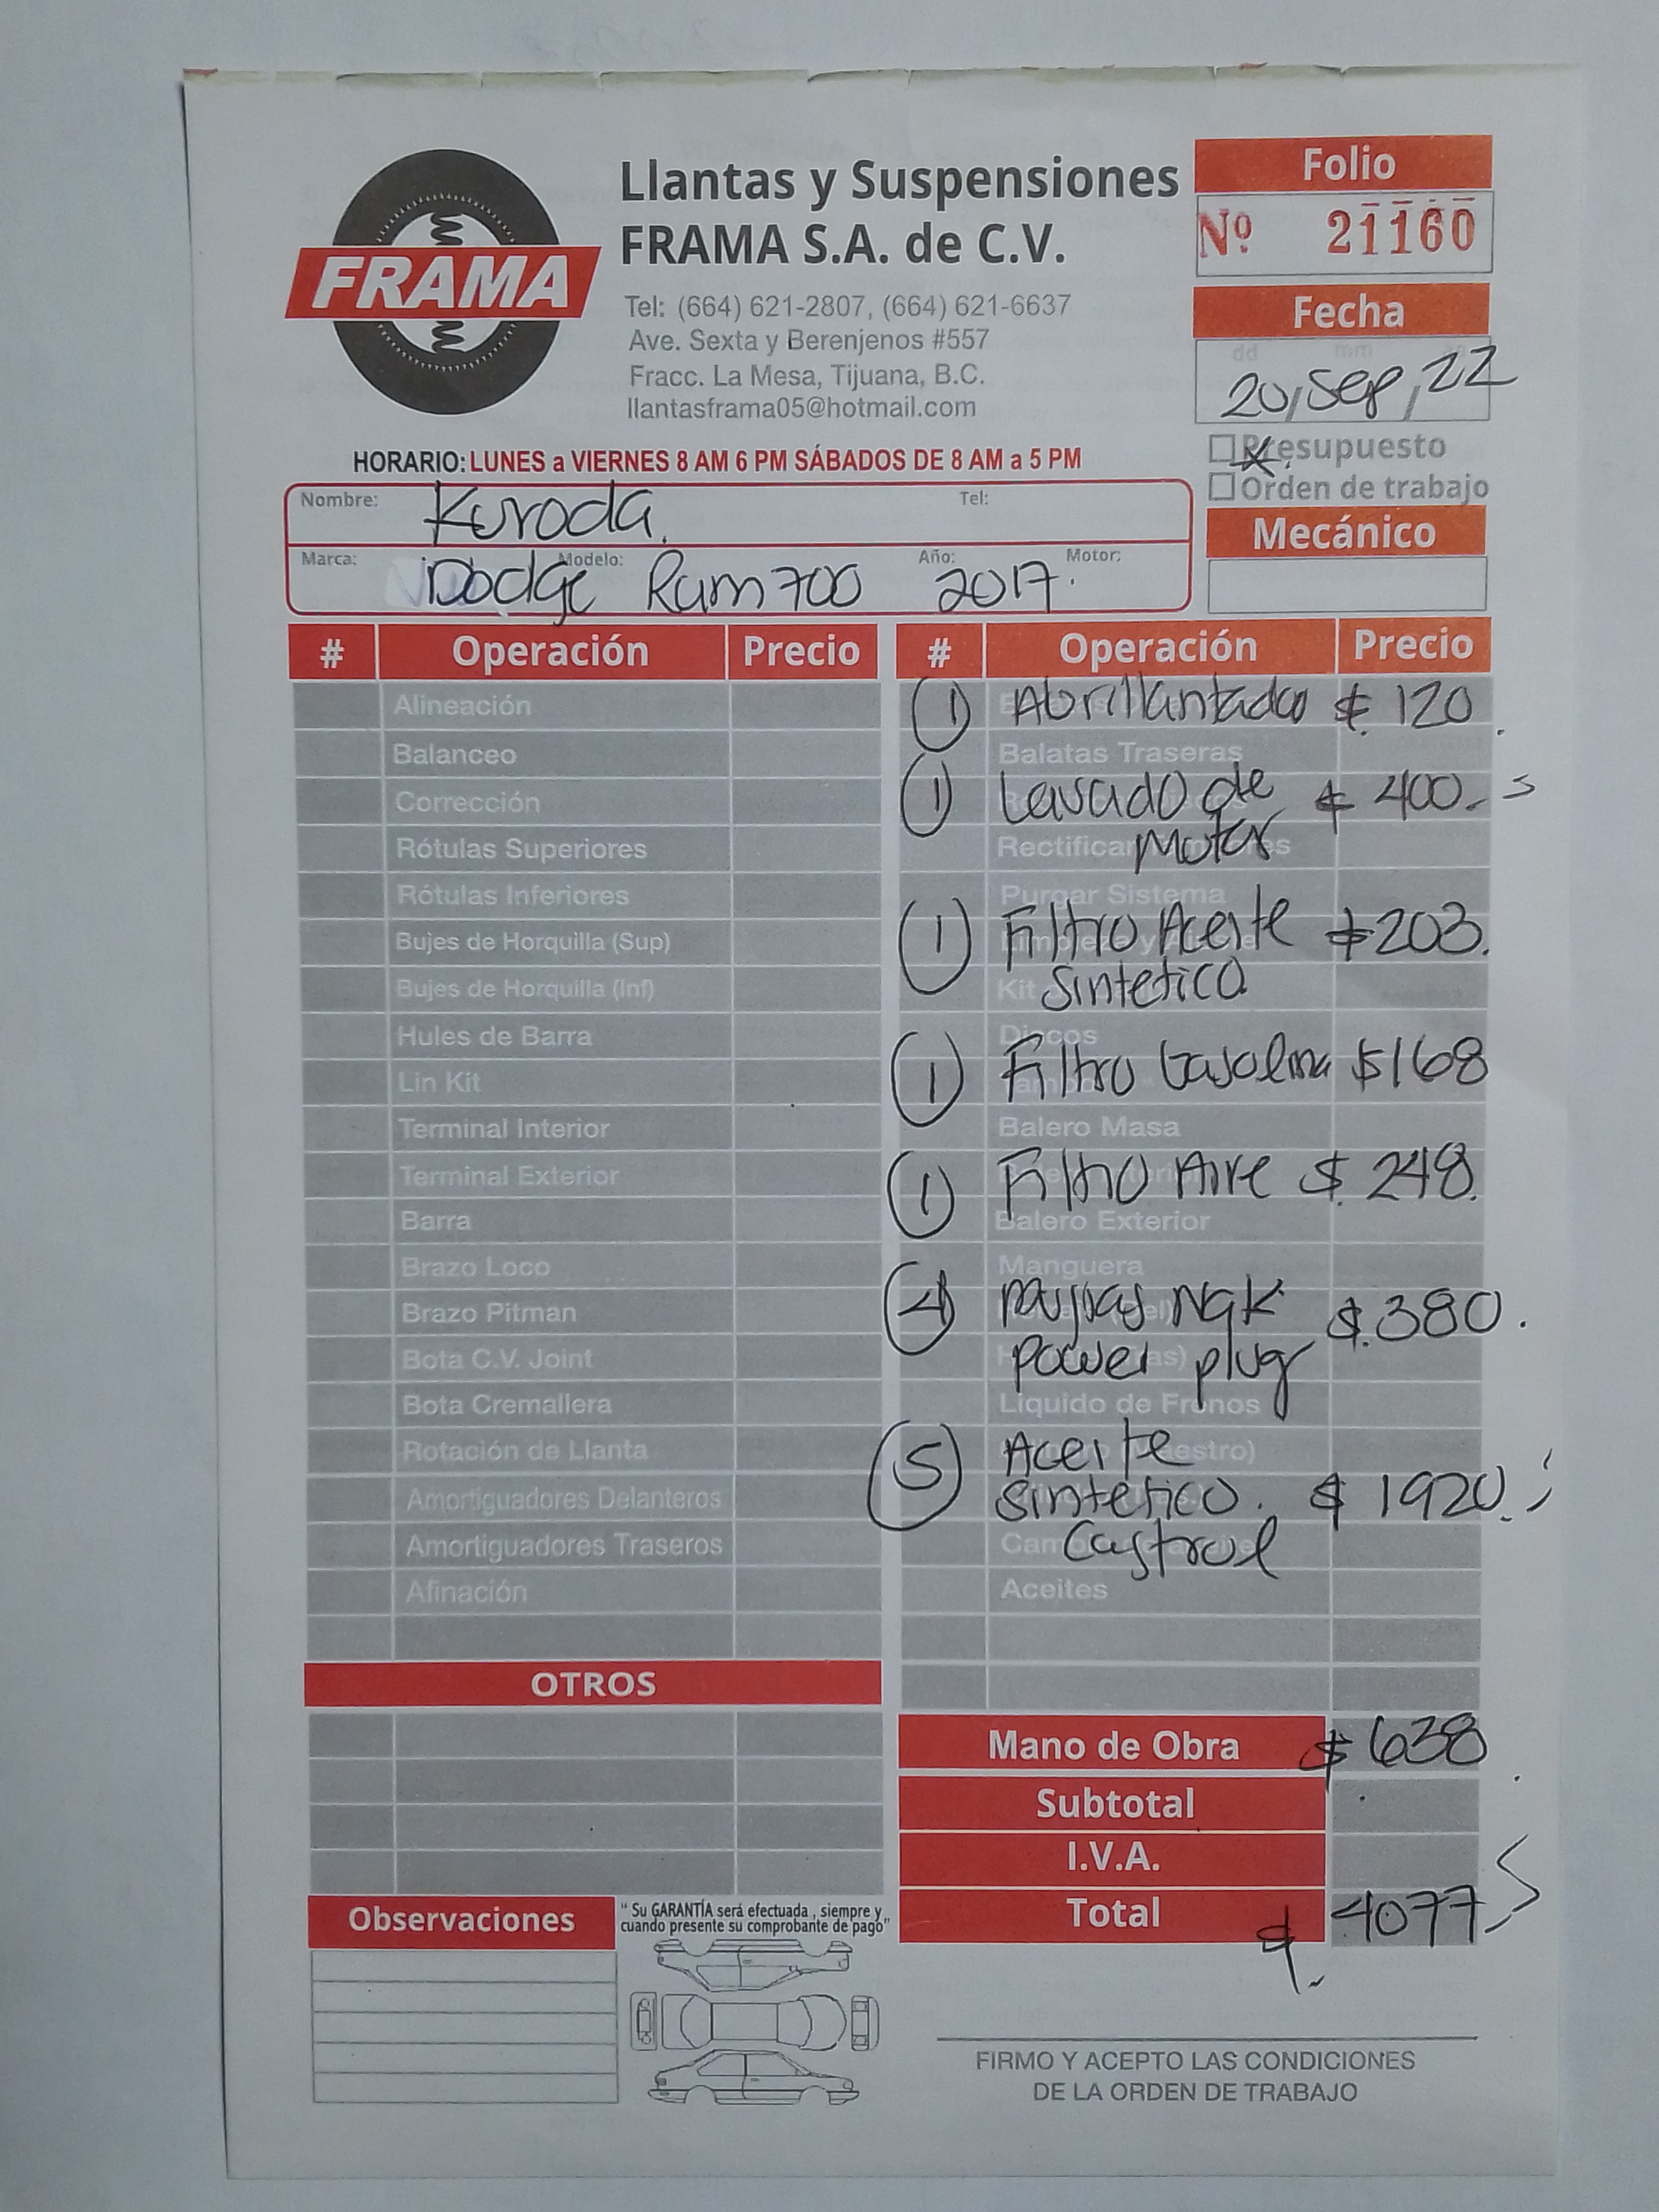 FRAMA
Llantas y Suspensiones
FRAMA S.A. de C.V.
Tel: (664) 621-2807, (664) 621-6637
Ave. Sexta y Berenjenos #557
Fracc. La Mesa, Tijuana, B.C.
llantasframa05@hotmail.com
Folio
Nº 21160
Fecha
dd mm
20, Sep, 22
Presupuesto
Orden de trabajo
HORARIO: LUNES a VIERNES 8 AM 6 PM SÁBADOS DE 8 AM a 5 PM
Nombre: Kuroda. Tel:
Marca: Dodge Modelo: Ram 700 Año: 2017. Motor:
Mecánico
# Operación Precio
Alineación
Balanceo
Corrección
Rótulas Superiores
Rótulas Inferiores
Bujes de Horquilla (Sup)
Bujes de Horquilla (Inf)
Hules de Barra
Lin Kit
Terminal Interior
Terminal Exterior
Barra
Brazo Loco
Brazo Pitman
Bota C.V. Joint
Bota Cremallera
Rotación de Llanta
Amortiguadores Delanteros
Amortiguadores Traseros
Afinación
OTROS
# Operación Precio
1 Abrillantado $ 120
Balatas Traseras
1 Lavado de $ 400.-
Motor
Rectificar
Purgar Sistema
1 Filtro Aceite $ 203.
Sintetico
Kit
Discos
1 Filtro Gasolina $168
Balero Masa
1 Filtro Aire $ 248.
Balero Exterior
Manguera
4 Bujias NGK $.380.
Power plug
Liquido de Frenos
5 Aceite
Sintetico. $ 1920.
Castrol
Aceites
Mano de Obra $ 638
Subtotal
I.V.A.
Total $ 4077
Observaciones
" Su GARANTÍA será efectuada , siempre y
cuando presente su comprobante de pago"
FIRMO Y ACEPTO LAS CONDICIONES
DE LA ORDEN DE TRABAJO